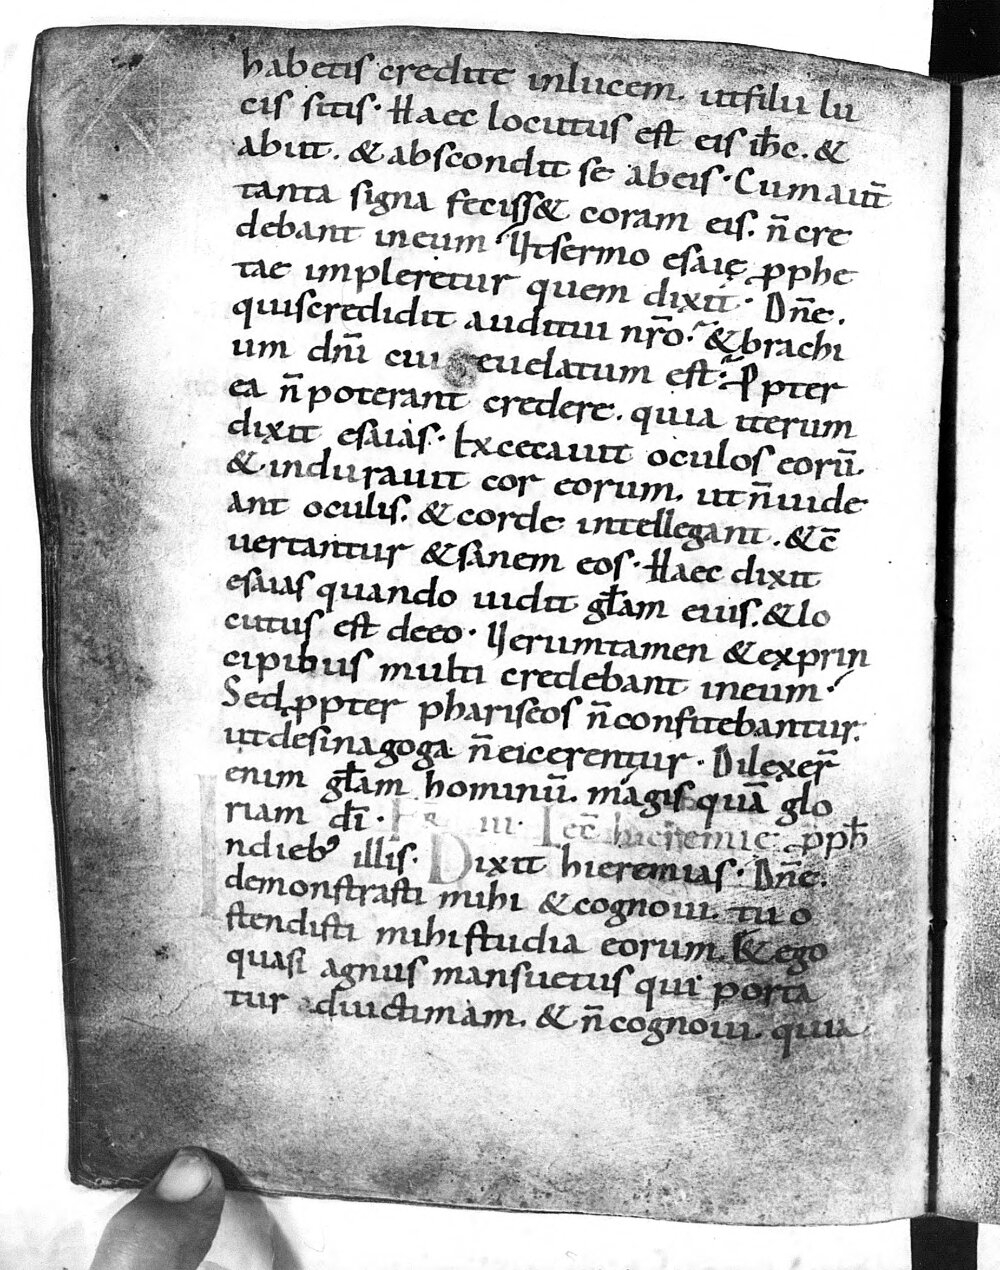 habetis credite inlucem. utfilii lu
cis sitis· Haec locutus est eis ih̄c. &
abiit. & abscondit se abeis· Cum aut̄
tanta signa feciss& coram eis. n̄ cre
debant ineum· Utsermo esaię pphe
tae impleretur quem dixit· Dn̄e.
quiscredidit auditui nr̄o. & brachi
um dn̄i cui reuelatum est· Ppter
ea n̄ poterant credere. quia iterum
dixit esaias· Excecauit oculos eorū.
& indurauit cor eorum. ut n̄ uide
ant oculis. & corde intellegant. & c̄
uertantur & sanem eos· Haec dixit
esaias quando uidit gl̄am eius. & lo
cutus est deeo· Uerumtamen & exprin
cipibus multi credebant ineum·
Sed ppter phariseos n̄ confitebantur.
utdesinagoga n̄ eicerentur· Dilexer̄
enim gl̄am hominū. magis quā glo
riam dī· F̄R III· Lec̄ hieremię pph̄
Indieb; illis· Dixit hieremias· Dn̄e.
demonstrasti mihi & cognoui. tu o
stendisti mihi studia eorum. & ego
quasi agnus mansuetus qui porta
tur aduictimam. & n̄ cognoui. quia